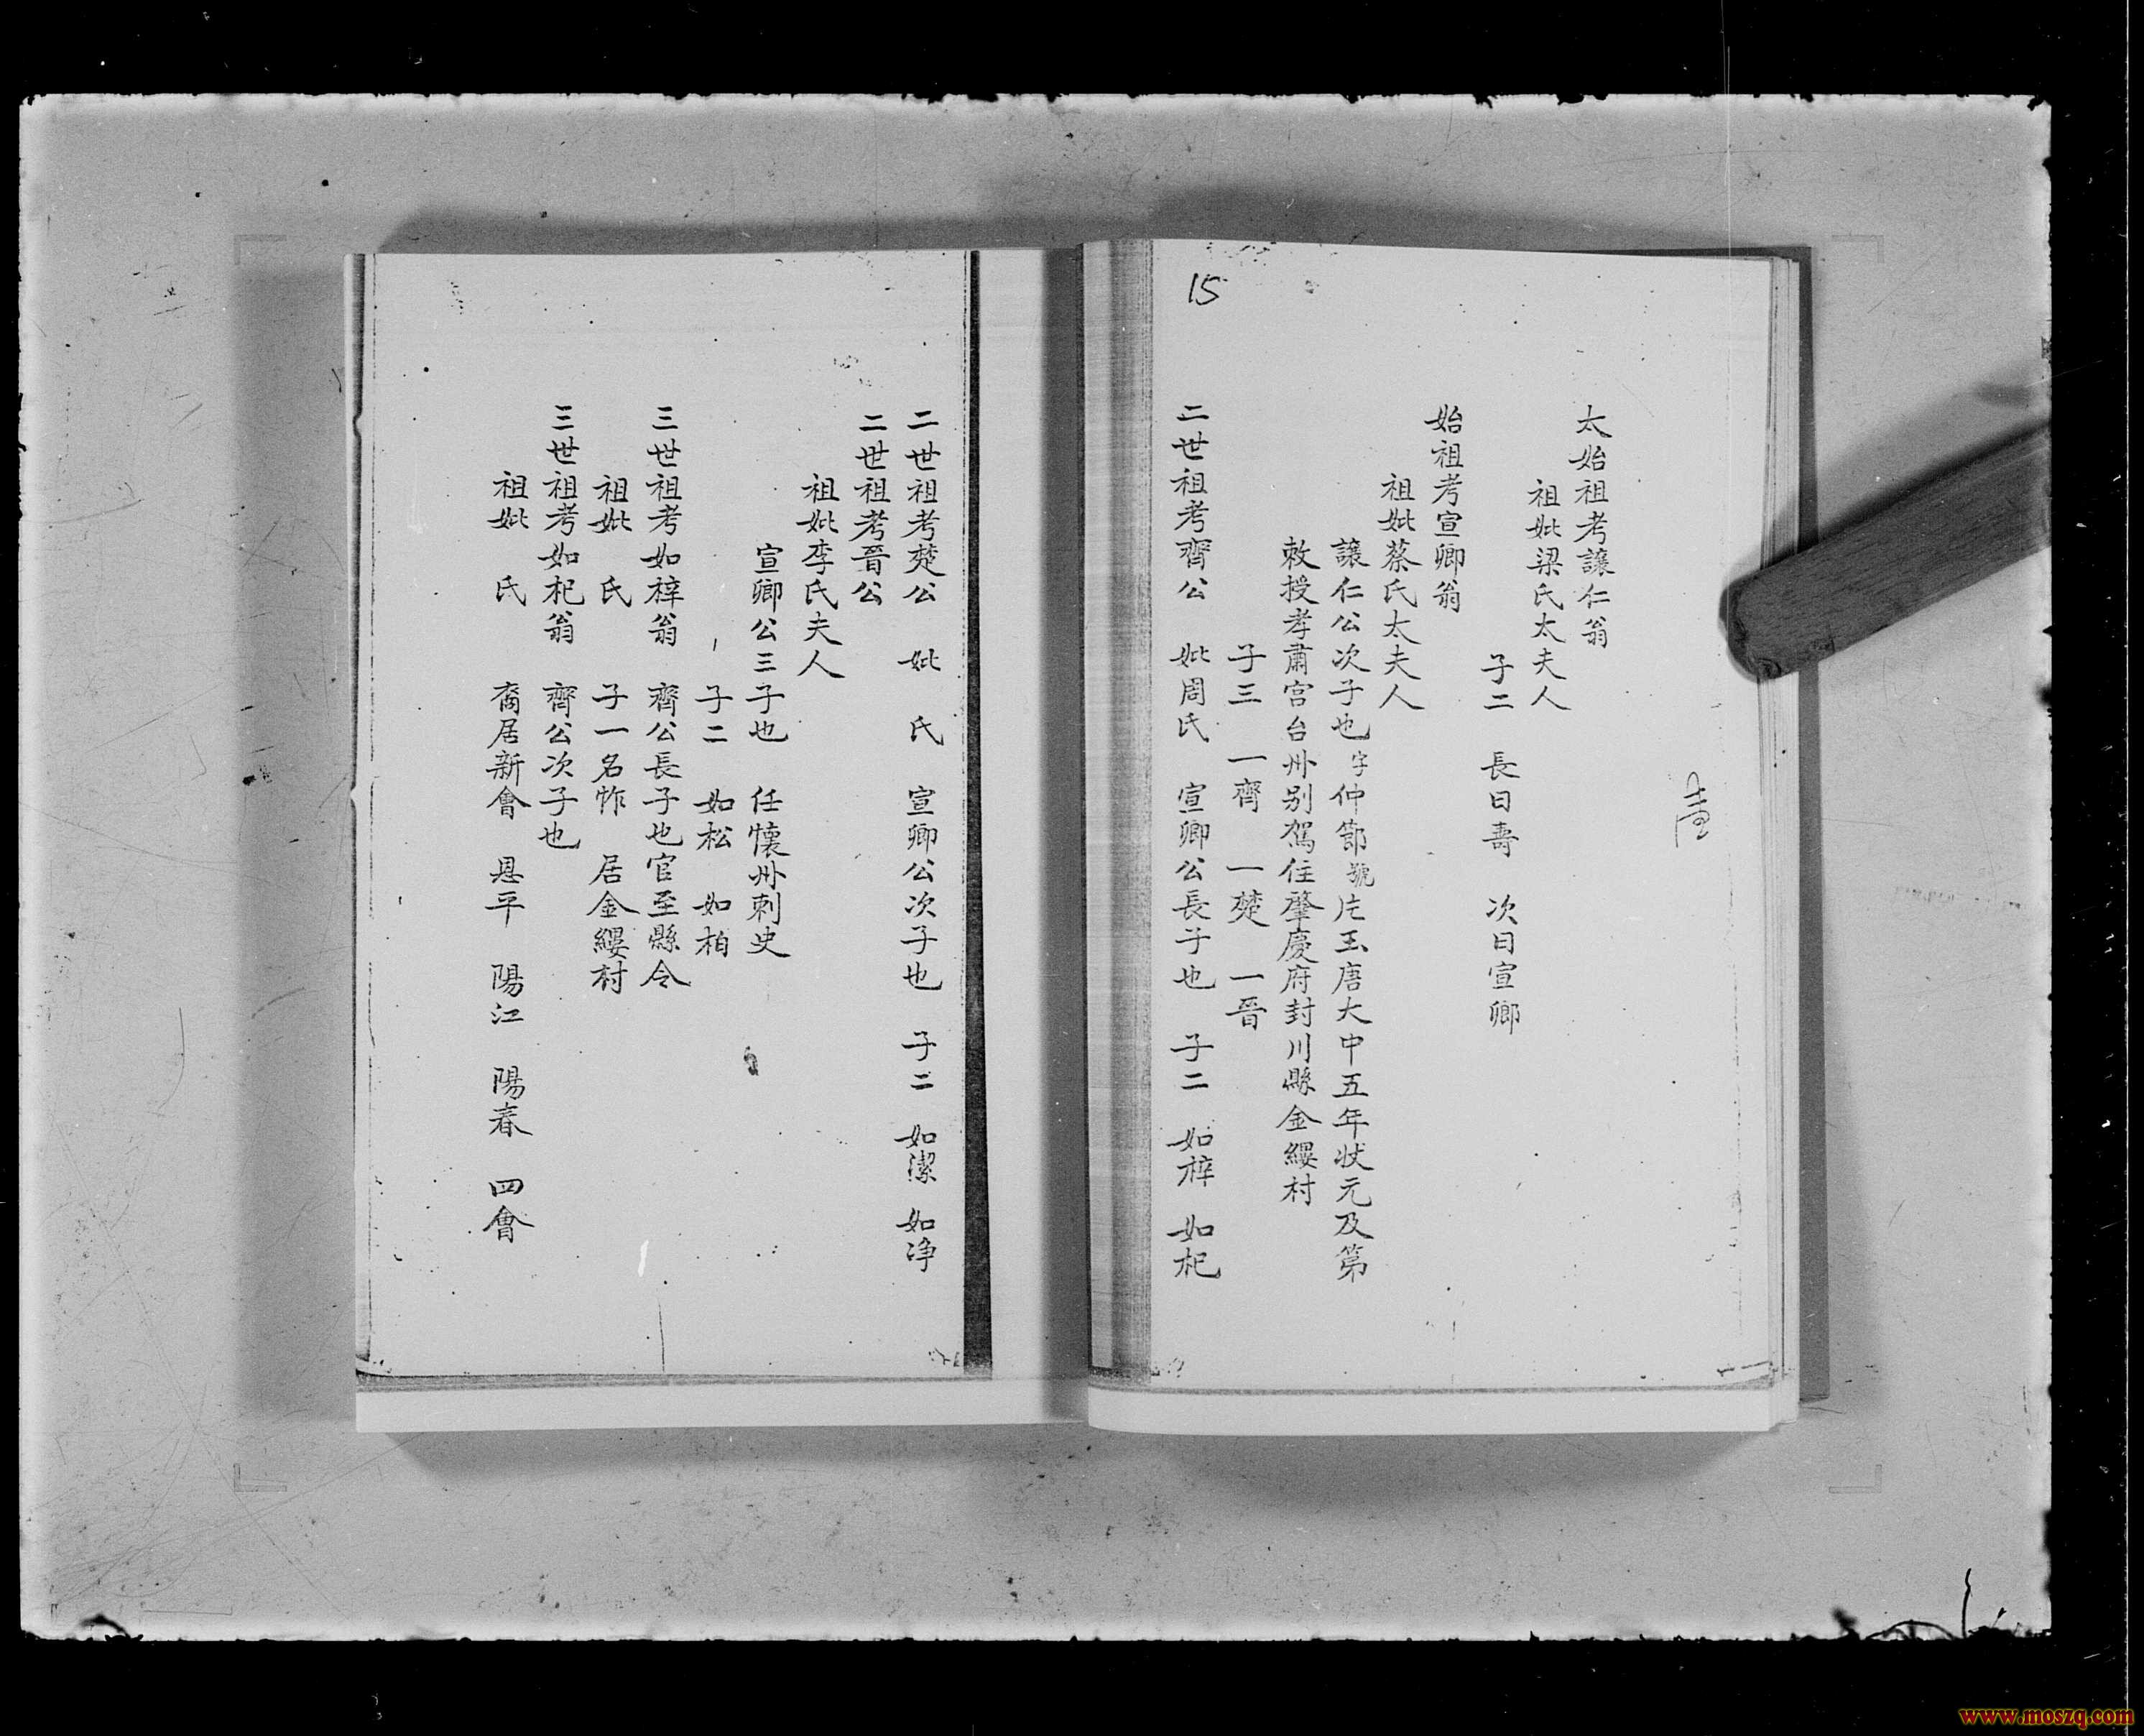 15
壹
太始祖考讓仁翁
祖妣梁氏太夫人
子二 長曰壽 次曰宣卿
始祖考宣卿翁
祖妣蔡氏太夫人
讓仁公次子也字仲節號片玉唐大中五年狀元及第
敕授孝肅宮台州别駕住肇慶府封川縣金縷村
子三 一齊 一楚 一晉
二世祖考齊公 妣周氏 宣卿公長子也 子二 如梓 如杞
二世祖考楚公 妣 氏 宣卿公次子也 子二 如潔 如净
二世祖考晉公
祖妣李氏夫人
宣卿公三子也 任懷州刺史
子二 如松 如柏
三世祖考如梓翁 齊公長子也官至縣令
祖妣 氏 子一名 居金縷村
三世祖考如杞翁 齊公次子也
祖妣 氏 裔居新會 恩平 陽江 陽春 四會
www.moszq.com